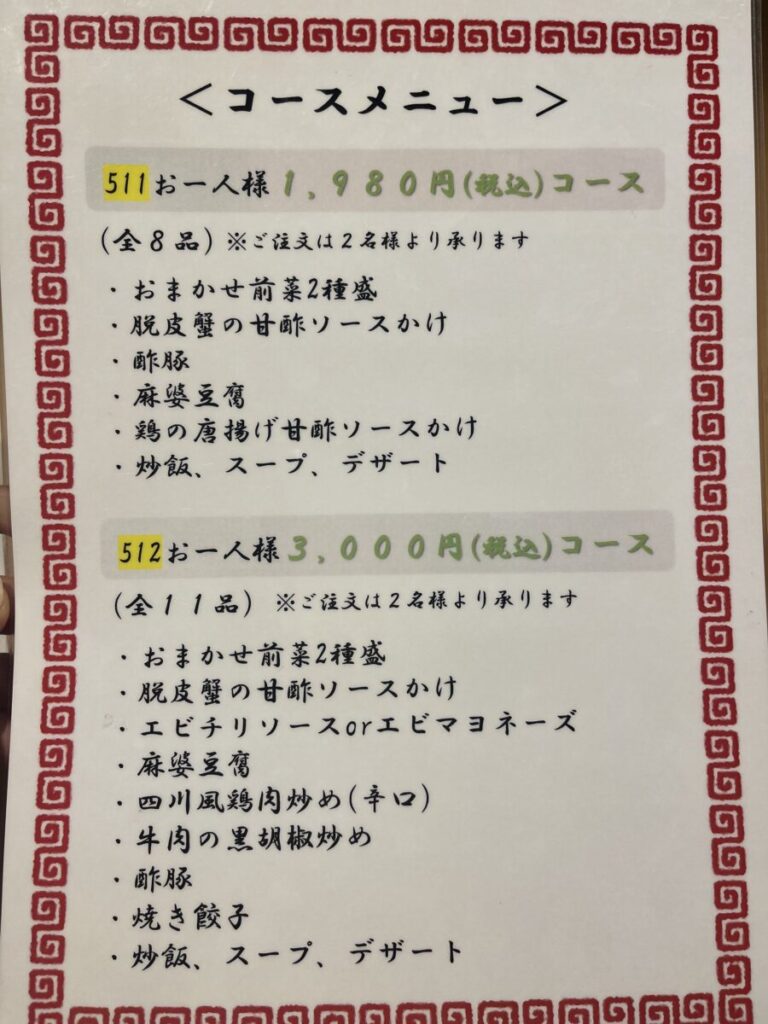 ＜コースメニュー＞
511お一人様１,９８０円(税込)コース
(全８品) ※ご注文は２名様より承ります
・おまかせ前菜2種盛
・脱皮蟹の甘酢ソースかけ
・酢豚
・麻婆豆腐
・鶏の唐揚げ甘酢ソースかけ
・炒飯、スープ、デザート
512お一人様３,０００円(税込)コース
(全１１品) ※ご注文は２名様より承ります
・おまかせ前菜2種盛
・脱皮蟹の甘酢ソースかけ
・エビチリソースorエビマヨネーズ
・麻婆豆腐
・四川風鶏肉炒め(辛口)
・牛肉の黒胡椒炒め
・酢豚
・焼き餃子
・炒飯、スープ、デザート